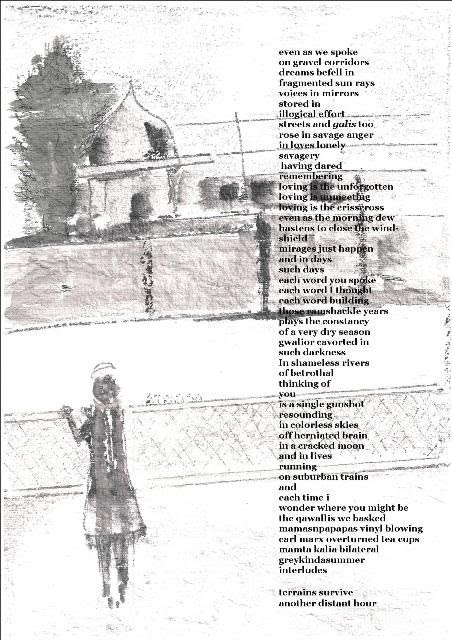 even as we spoke
on gravel corridors
dreams befell in
fragmented sun rays
voices in mirrors
stored in
illogical effort
streets and galis too
rose in savage anger
in loves lonely
savagery
having dared
remembering
loving is the unforgotten
loving is unmeeting
loving is the crisscross
even as the morning dew
hastens to close the wind-
shield
mirages just happen
and in days
such days
each word you spoke
each word I thought
each word building
those ramshackle years
plays the constancy
of a very dry season
gwalior cavorted in
such darkness
In shameless rivers
of betrothal
thinking of
you
is a single gunshot
resounding
in colorless skies
off herniated brain
in a cracked moon
and in lives
running
on suburban trains
and
each time i
wonder where you might be
the qawallis we basked
mamasnpapapas vinyl blowing
carl marx overturned tea cups
mamta kalia bilateral
greykindasummer
interludes
terrains survive
another distant hour